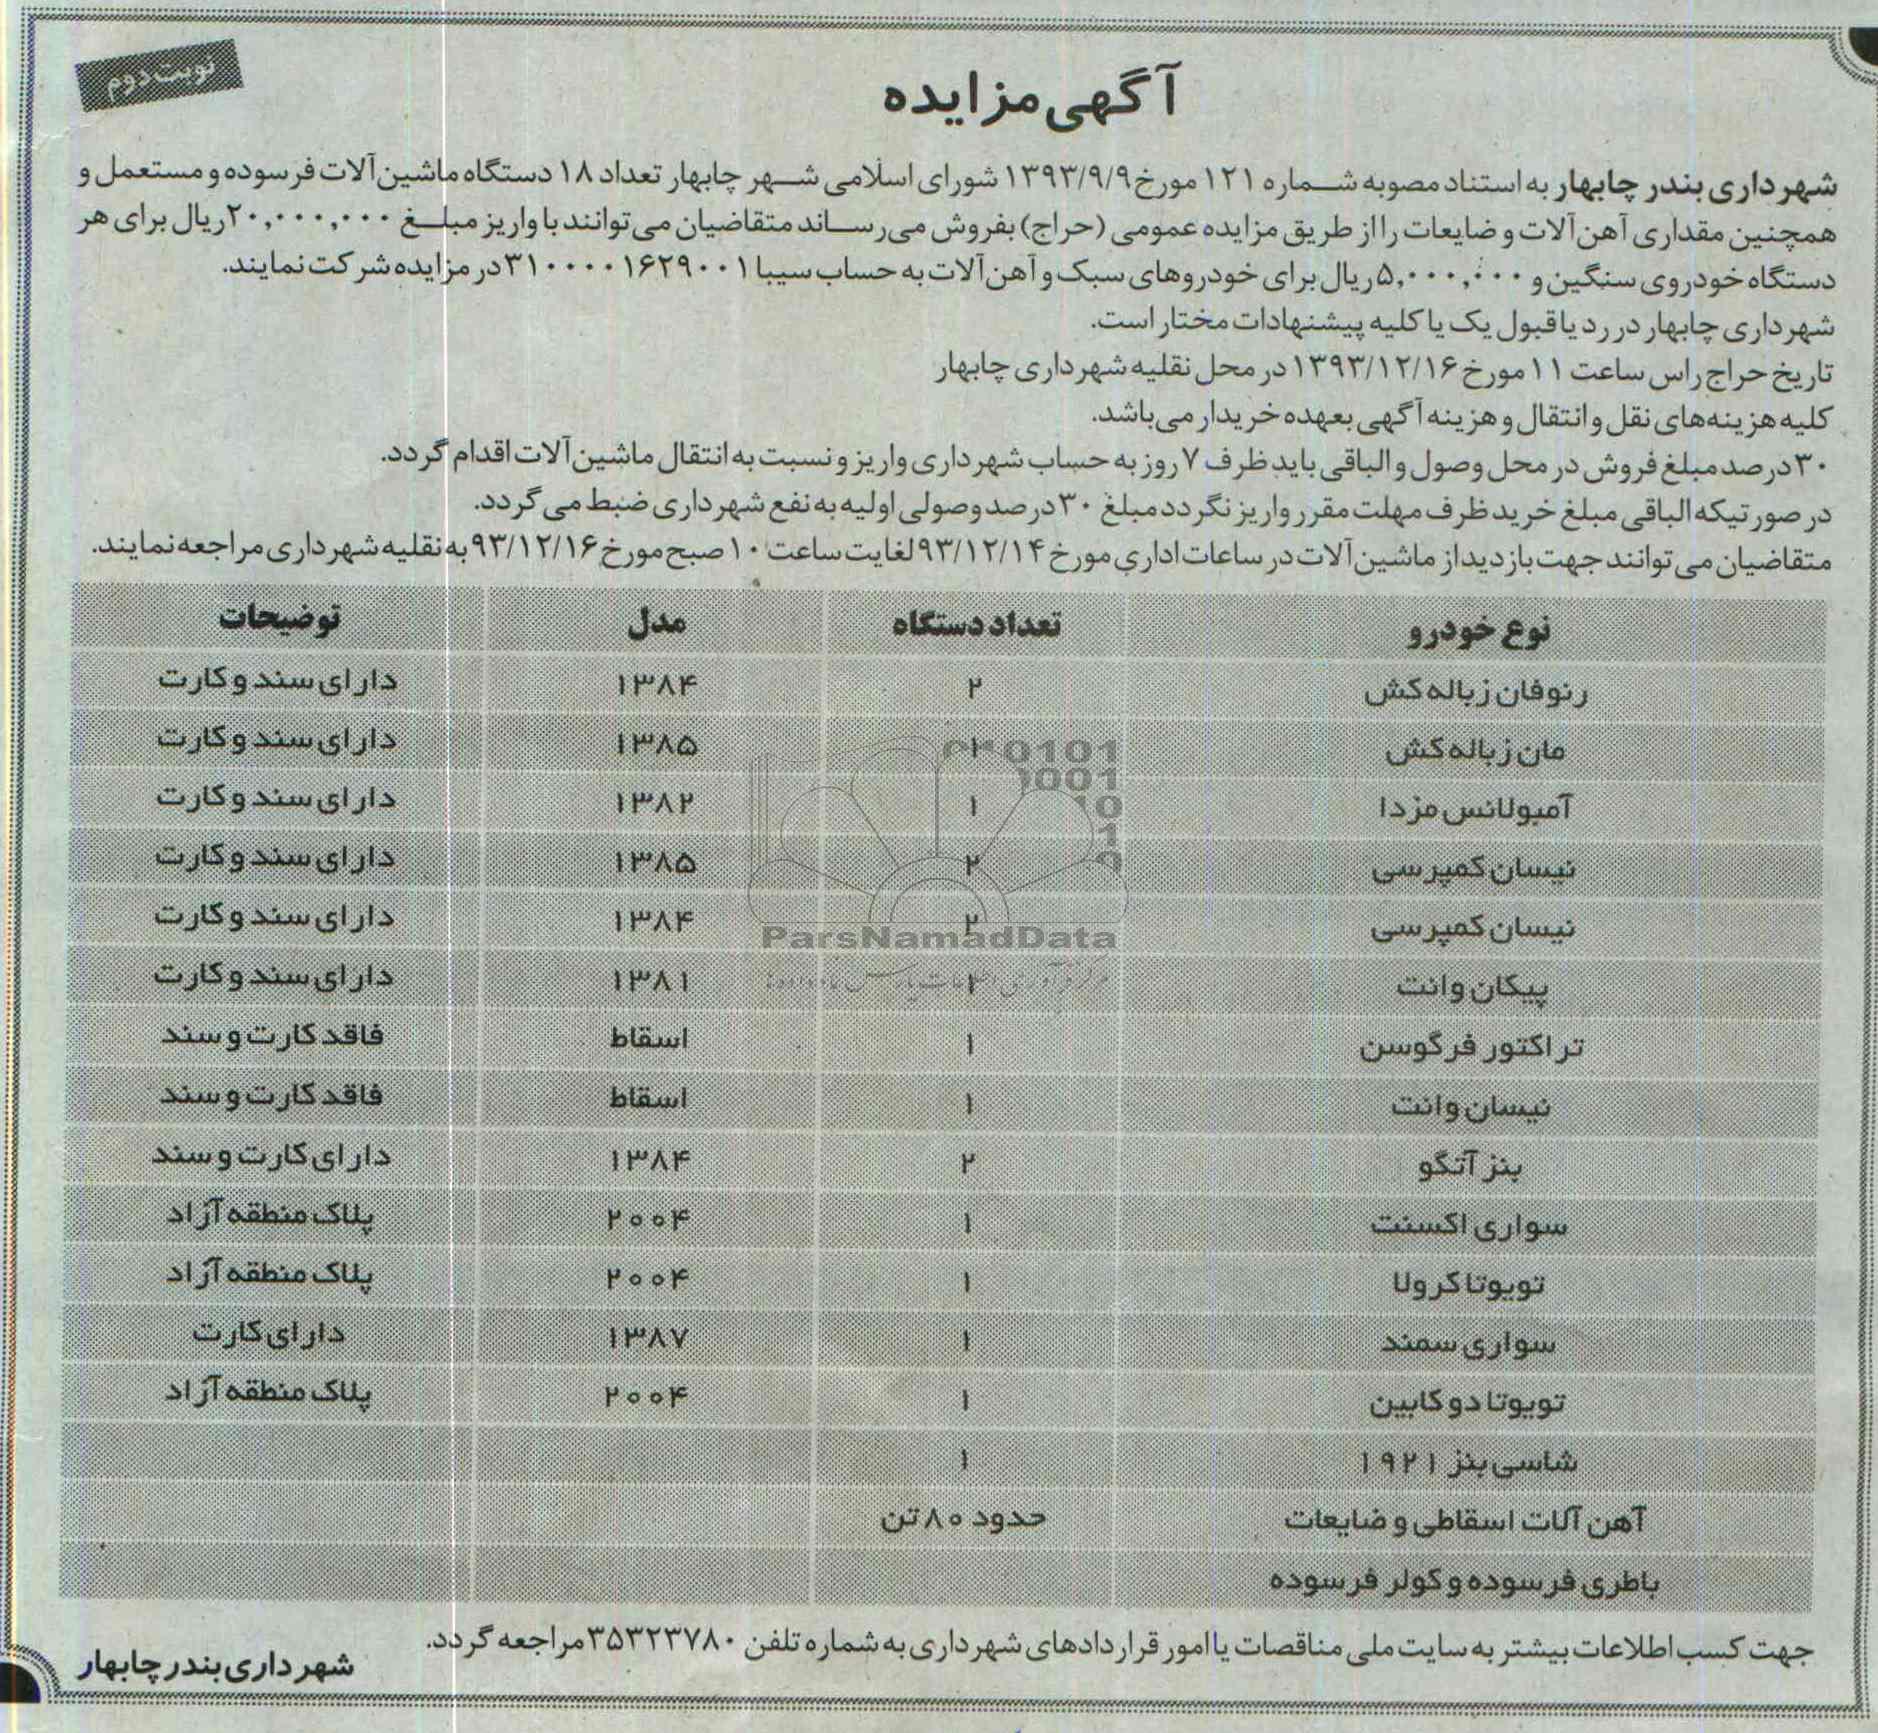 نوبت دوم
آگهی مزایده
شهرداری بندر چابهار به استناد مصوبه شماره ۱۲۱ مورخ ۱۳۹۳/۹/۹ شورای اسلامی شهر چابهار تعداد ۱۸ دستگاه ماشین‌آلات فرسوده و مستعمل و
همچنین مقداری آهن‌آلات و ضایعات را از طریق مزایده عمومی (حراج) بفروش می‌رساند متقاضیان می‌توانند با واریز مبلغ ۲۰,۰۰۰,۰۰۰ ریال برای هر
دستگاه خودروی سنگین و ۵,۰۰۰,۰۰۰ ریال برای خودروهای سبک و آهن‌آلات به حساب سیبا ۳۱۰۰۰۰۱۶۲۹۰۰۱ در مزایده شرکت نمایند.
شهرداری چابهار در رد یا قبول یک یا کلیه پیشنهادات مختار است.
تاریخ حراج راس ساعت ۱۱ مورخ ۱۳۹۳/۱۲/۱۶ در محل نقلیه شهرداری چابهار
کلیه هزینه‌های نقل و انتقال و هزینه آگهی بعهده خریدار می‌باشد.
۳۰ درصد مبلغ فروش در محل وصول و الباقی باید ظرف ۷ روز به حساب شهرداری واریز و نسبت به انتقال ماشین‌آلات اقدام گردد.
در صورتیکه الباقی مبلغ خرید ظرف مهلت مقرر واریز نگردد مبلغ ۳۰ درصد وصولی اولیه به نفع شهرداری ضبط می‌گردد.
متقاضیان می‌توانند جهت بازدید از ماشین‌آلات در ساعات اداری مورخ ۹۳/۱۲/۱۴ لغایت ساعت ۱۰ صبح مورخ ۹۳/۱۲/۱۶ به نقلیه شهرداری مراجعه نمایند.
نوع خودرو تعداد دستگاه مدل توضیحات
رنوفان زباله کش ۲ ۱۳۸۴ دارای سند و کارت
مان زباله کش ۱۳۸۵ دارای سند و کارت
آمبولانس مزدا ۱ ۱۳۸۲ دارای سند و کارت
نیسان کمپرسی ۲ ۱۳۸۵ دارای سند و کارت
نیسان کمپرسی ۲ ۱۳۸۴ دارای سند و کارت
پیکان وانت ۱۳۸۱ دارای سند و کارت
تراکتور فرگوسن ۱ اسقاط فاقد کارت و سند
نیسان وانت ۱ اسقاط فاقد کارت و سند
بنز آتگو ۲ ۱۳۸۴ دارای کارت و سند
سواری اکسنت ۱ ۲۰۰۴ پلاک منطقه آزاد
تویوتا کرولا ۱ ۲۰۰۴ پلاک منطقه آزاد
سواری سمند ۱ ۱۳۸۷ دارای کارت
تویوتا دو کابین ۱ ۲۰۰۴ پلاک منطقه آزاد
شاسی بنز ۱۹۲۱ ۱
آهن آلات اسقاطی و ضایعات حدود ۸۰ تن
باطری فرسوده و کولر فرسوده
ParsNamadData
جهت کسب اطلاعات بیشتر به سایت ملی مناقصات یا امور قراردادهای شهرداری به شماره تلفن ۳۵۳۲۳۷۸۰ مراجعه گردد.
شهرداری بندر چابهار